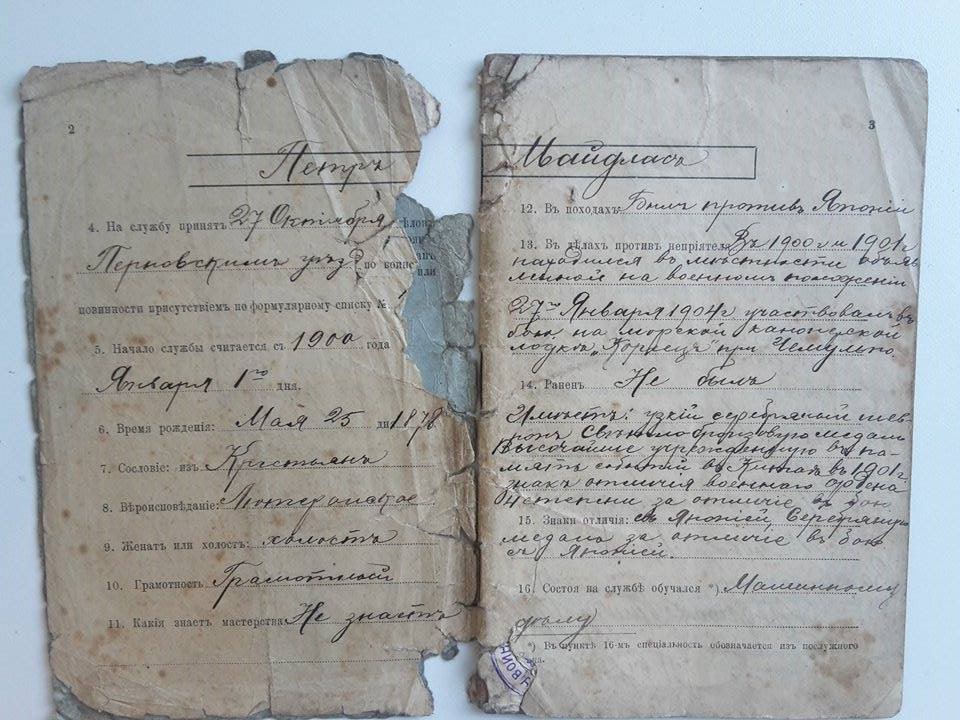 2
Петръ
4. На службу принятъ 27 Октября
Перновскимъ уѣзд по воинс
повинности присутствіемъ по формулярному списку №
5. Начало службы считается съ 1900 года
Января 1го дня.
6. Время рожденія: Мая 25 дн 1878
7. Сословіе: изъ Крестьянъ
8. Вѣроисповѣданіе: Лютеранское
9. Женатъ или холостъ: холостъ
10. Грамотность Грамотный
11. Какія знаетъ мастерства Не знаетъ
3
Майдласъ
12. Въ походахъ: Былъ противъ Японіи
13. Въ дѣлахъ противъ непріятеля Въ 1900 г и 1901 г
находился въ мѣстности объяв
ленной на военномъ положеніи
27го Января 1904 г участвовалъ въ
бою на морской канонерской
лодкѣ „Кореецъ" при Чемульпо
14. Раненъ Не былъ
Имѣетъ: узкій серебряный шев
ронъ свѣтлобронзовую медаль
Высочайше учрежденную въ па-
мять событій въ Китаѣ въ 1901 г.
знакъ отличія военнаго ордена
4 степени за отличіе въ бою
15. Знаки отличія: съ Японіей, Серебряную
медаль за отличіе въ бою
съ Японіей.
16. Состоя на службѣ обучался *) Машинному
дѣлу
*) Въ пунктѣ 16-мъ спеціальность обозначается изъ послужного